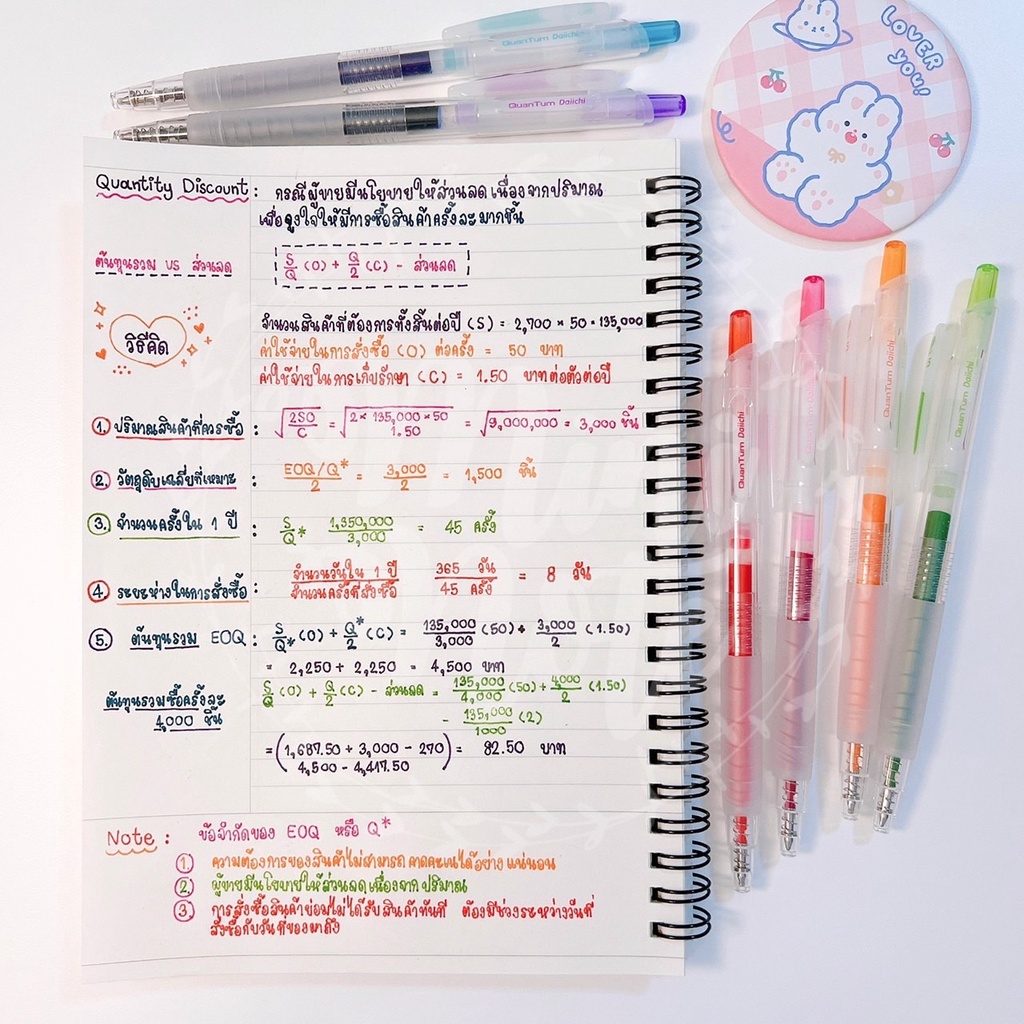 QuanTum Daiichi
QuanTum Daiichi
LOVER
YOU!
Quantity Discount : กรณีผู้ขายมีนโยบายให้ส่วนลดเนื่องจากปริมาณ
เพื่อจูงใจให้มีการซื้อสินค้าครั้งละมากขึ้น
ต้นทุนรวม vs ส่วนลด
S/Q (O) + Q/2 (C) - ส่วนลด
วิธีคิด
จำนวนสินค้าที่ต้องการทั้งสิ้นต่อปี (S) = 2,700 × 50 = 135,000
ค่าใช้จ่ายในการสั่งซื้อ (O) ต่อครั้ง = 50 บาท
ค่าใช้จ่ายในการเก็บรักษา (C) = 1.50 บาทต่อตัวต่อปี
1. ปริมาณสินค้าที่ควรซื้อ : √(2SO/C) = √(2 × 135,000 × 50/1.50) = √9,000,000 = 3,000 ชิ้น
2. วัตถุดิบเฉลี่ยที่เหมาะ : EOQ/Q*/2 = 3,000/2 = 1,500 ชิ้น
3. จำนวนครั้งใน 1 ปี : S/Q* 1,350,000/3,000 = 45 ครั้ง
4. ระยะห่างในการสั่งซื้อ : จำนวนวันใน 1 ปี/จำนวนครั้งที่สั่งซื้อ 365 วัน/45 ครั้ง = 8 วัน
5. ต้นทุนรวม EOQ : S/Q* (O) + Q*/2 (C) = 135,000/3,000 (50) + 3,000/2 (1.50)
= 2,250 + 2,250 = 4,500 บาท
ต้นทุนรวมซื้อครั้งละ
4,000 ชิ้น
S/Q (O) + Q/2 (C) - ส่วนลด = 135,000/4,000 (50) + 4,000/2 (1.50)
- 135,000/1000 (2)
= (1,687.50 + 3,000 - 270) = 82.50 บาท
4,500 - 4,417.50
Note : ข้อจำกัดของ EOQ หรือ Q*
1. ความต้องการของสินค้าไม่สามารถคาดคะเนได้อย่างแน่นอน
2. ผู้ขายมีนโยบายให้ส่วนลดเนื่องจากปริมาณ
3. การสั่งซื้อสินค้าย่อมไม่ได้รับสินค้าทันที ต้องมีช่วงระหว่างวันที่
สั่งซื้อกับวันที่ของมาถึง
QuanTum Daiichi
QuanTum Daiichi
QuanTum Daiichi
QuanTum Daiichi